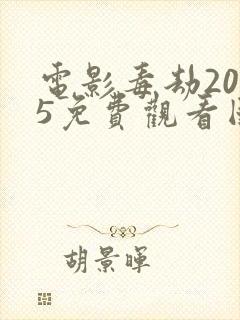 電影毒劫20
5免費觀看國
胡景暉